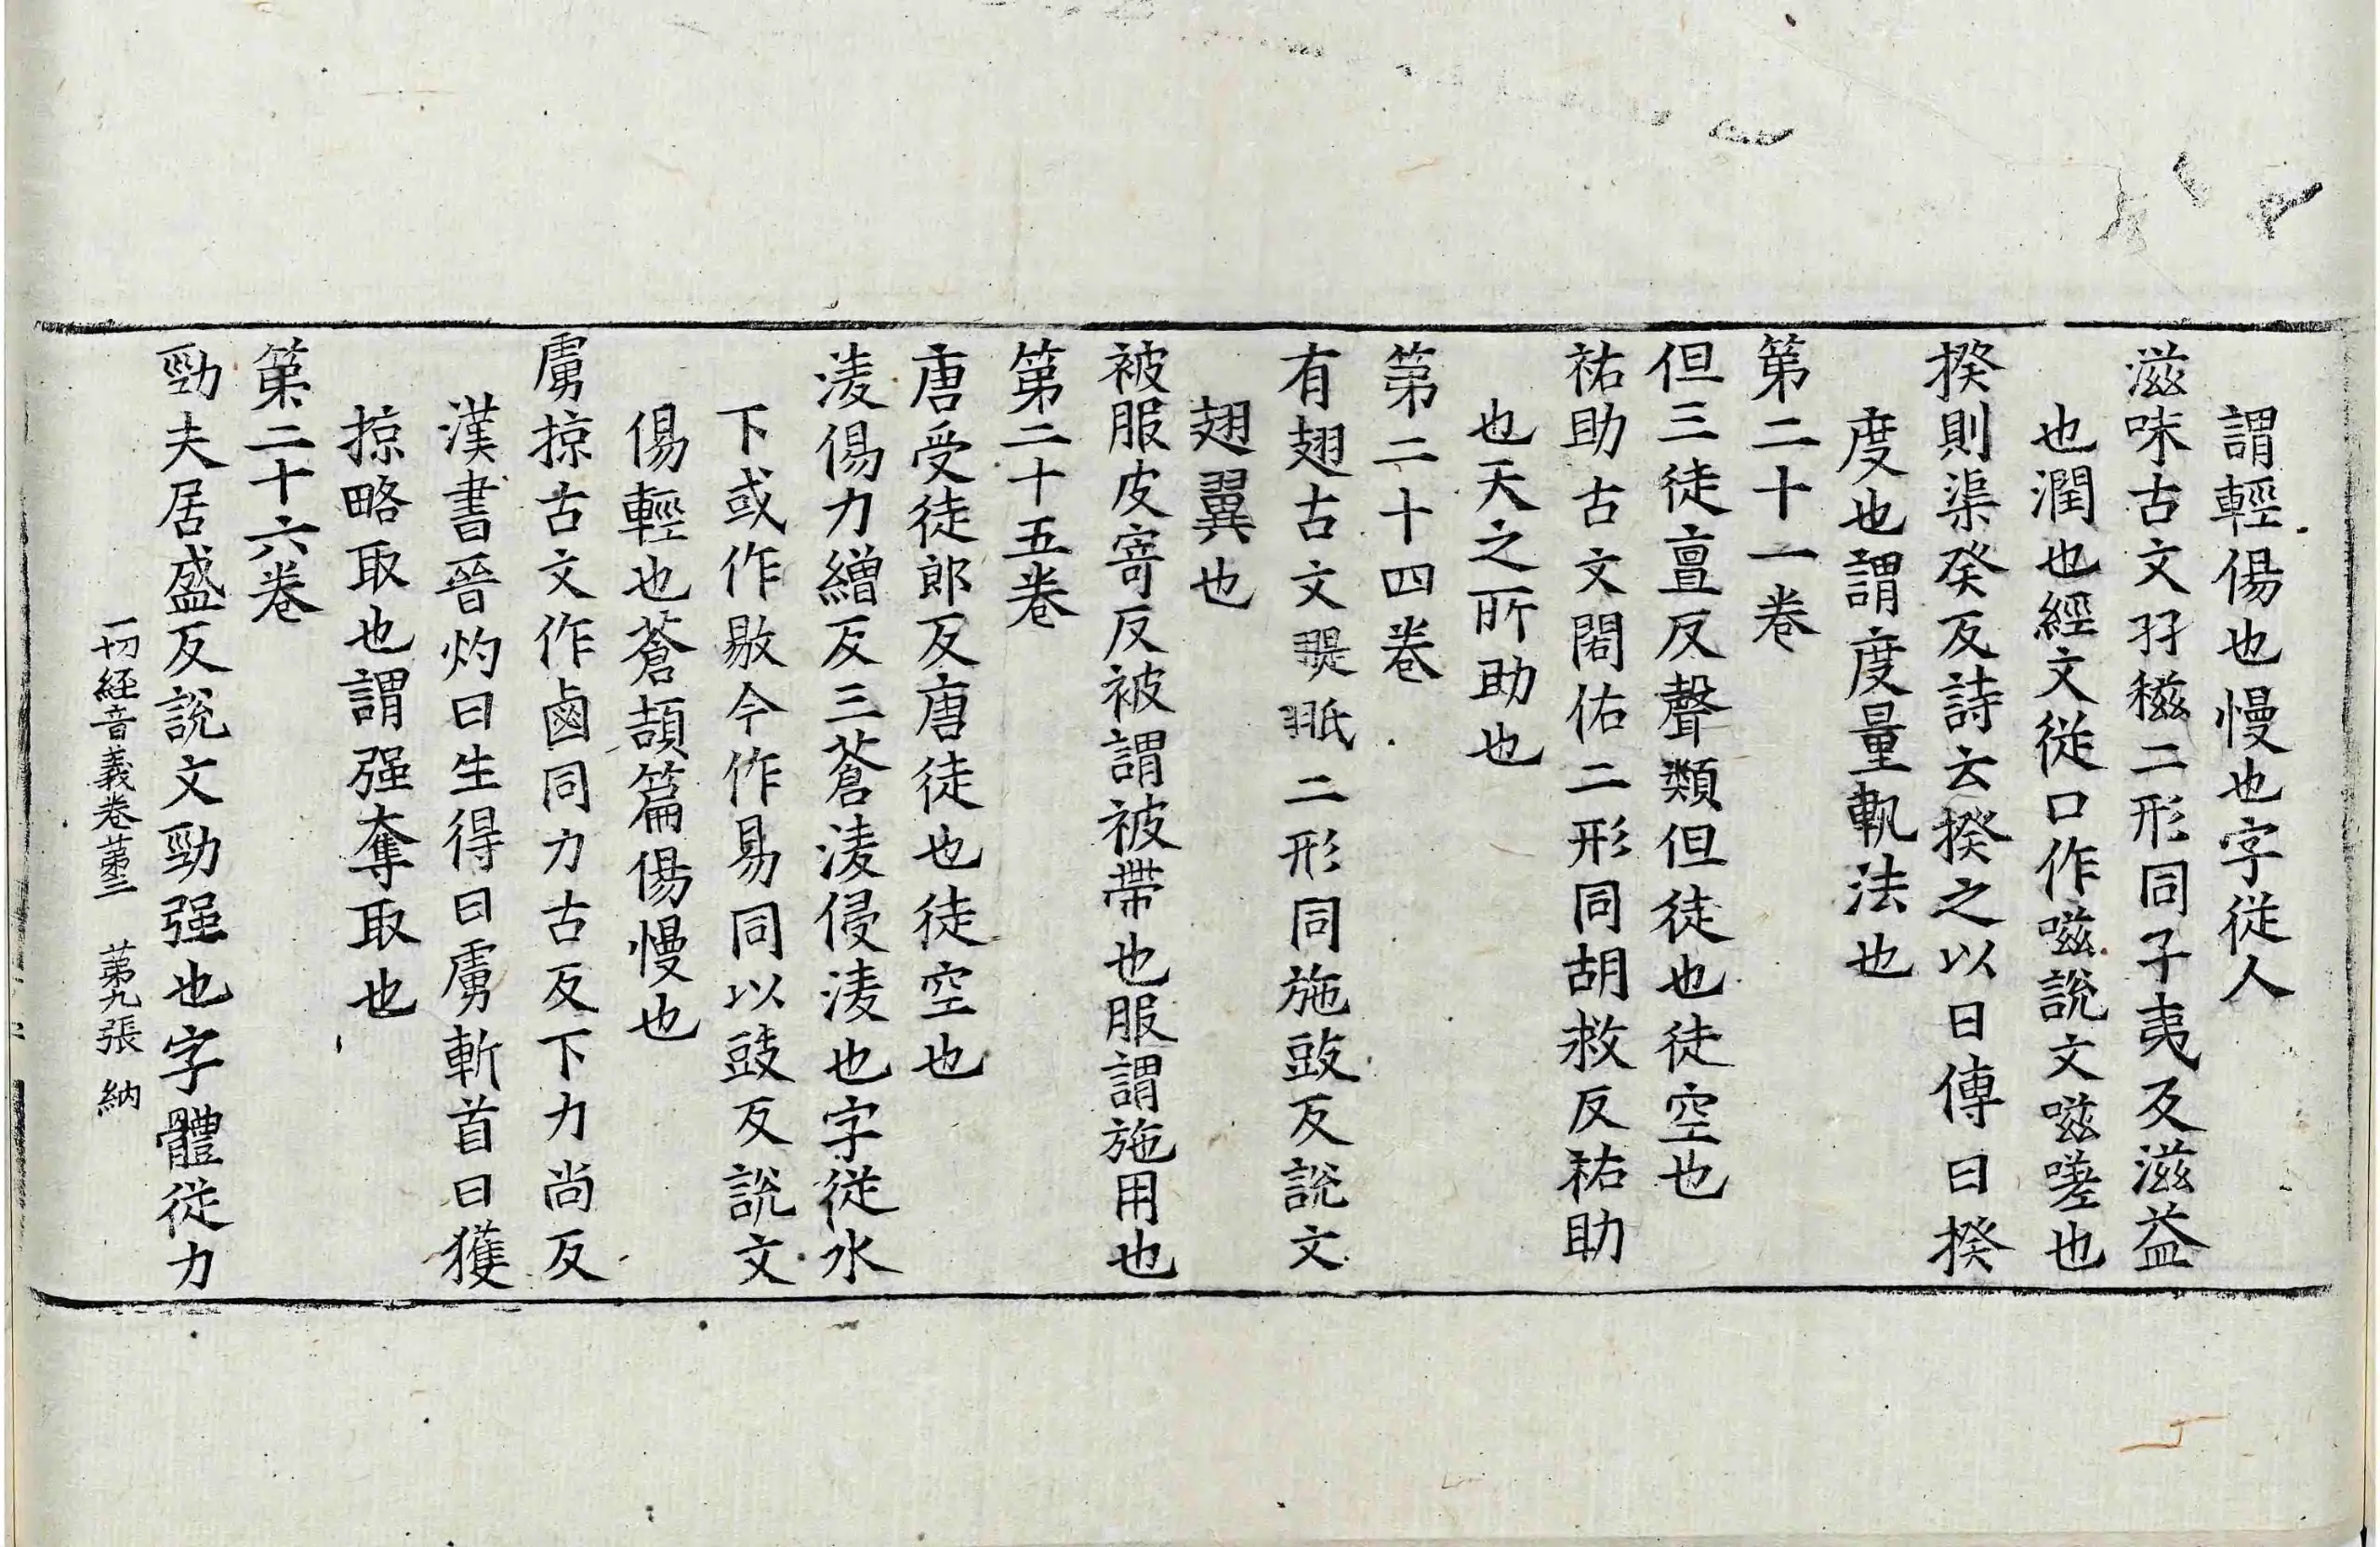 謂輕傷也慢也字從人
滋味古文孖稵二形同子夷反滋益
也潤也經文從口作嗞說文嗞嗟也
揆則渠癸反詩云揆之以日傳曰揆
度也謂度量軌法也
第二十一卷
但三徒亶反聲類但徒也徒空也
祐助古文閤佑二形同胡救反祐助
也天之所助也
第二十四卷
有翅古文翨𦐊二形同施豉反說文
翅翼也
被服皮寄反被謂被帶也服謂施用也
第二十五卷
唐受徒郎反唐徒也徒空也
淩傷力繒反三蒼淩侵淩也字從水
下或作敭今作易同以豉反說文
傷輕也蒼頡篇傷慢也
虜掠古文作鹵同力古反下力尚反
漢書晉灼曰生得曰虜斬首曰獲
掠略取也謂强奪取也
第二十六卷
勁夫居盛反說文勁强也字體從力
一切經音義卷第三 第九張 納